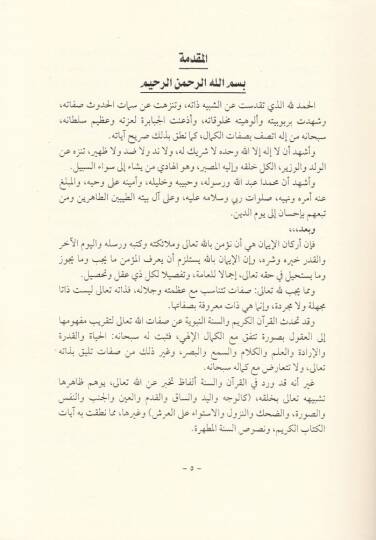 المقدمة
بسم الله الرحمن الرحيم
الحمد لله الذي تقدست عن الشبيه ذاته، وتنزهت عن سمات الحدوث صفاته،
وشهدت بربوبيته وألوهيته مخلوقاته، وأذعنت الجبابرة لعزته وعظيم سلطانه،
سبحانه من إله اتصف بصفات الكمال، كما نطق بذلك صريح آياته.
وأشهد أن لا إله إلا الله وحده لا شريك له، ولا ند ولا ضد ولا ظهير، تنزه عن
الولد والوزير، الكل خلقه وإليه المصير، وهو الهادي من يشاء إلى سواء السبيل.
وأشهد أن محمدا عبد الله ورسوله، وحبيبه وخليله، وأمينه على وحيه، والمبلغ
عنه أمره ونهيه، صلوات ربي وسلامه عليه، وعلى آل بيته الطيبين الطاهرين ومن
تبعهم بإحسان إلى يوم الدين.
وبعد،،،
فإن أركان الإيمان هي أن نؤمن بالله تعالى وملائكته وكتبه ورسله واليوم الآخر
والقدر خيره وشره، وإن الإيمان بالله يستلزم أن يعرف المؤمن ما يجب وما يجوز
وما يستحيل في حقه تعالى، إجمالا للعامة، وتفصيلا لكل ذي عقل وتحصيل.
ومما يجب لله تعالى: صفات تتناسب مع عظمته وجلاله، فذاته تعالى ليست ذاتا
مجهلة ولا مجردة، وإنما هي ذات معروفة بصفاتها.
وقد تحدث القرآن الكريم والسنة النبوية عن صفات الله تعالى لتقريب مفهومها
إلى العقول بصورة تتفق مع الكمال الإلهي، فثبت له سبحانه: الحياة والقدرة
والإرادة والعلم والكلام والسمع والبصر، وغير ذلك من صفات تليق بذاته
تعالى، ولا تتعارض مع كماله سبحانه.
غير أنه قد ورد في القرآن والسنة ألفاظ تخبر عن الله تعالى، يوهم ظاهرها
تشبيهه تعالى بخلقه، (كالوجه واليد والساق والقدم والعين والجنب والنفس
والصورة، والضحك والنزول والاستواء على العرش) وغيرها، مما نطقت به آيات
الكتاب الكريم، ونصوص السنة المطهرة.
- ٥ -